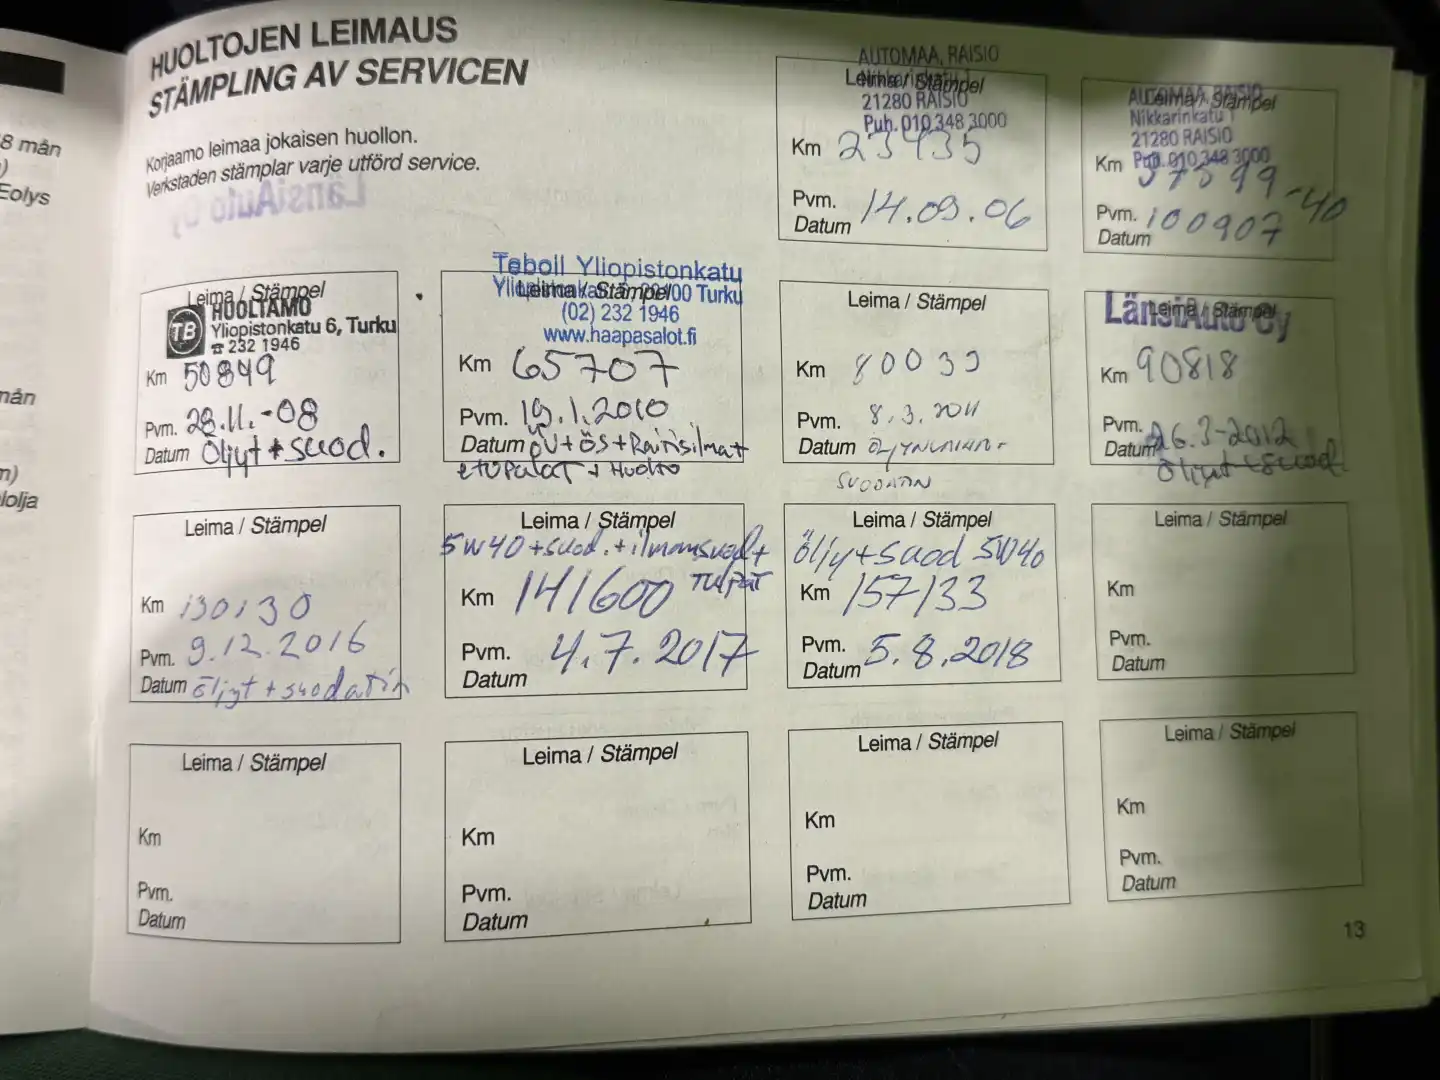 HUOLTOJEN LEIMAUS
STÄMPLING AV SERVICEN
Korjaamo leimaa jokaisen huollon.
Verkstaden stämplar varje utförd service.
LänsiAuto Oy
8 mån
)
Eolys
mån
n)
lolja
AUTOMAA, RAISIO
Leima / Stämpel
21280 RAISIO
Puh. 010 348 3000
Km 23935
Pvm. 14.09.06
Datum
AUTOMAA, RAISIO
Leima / Stämpel
Nikkarinkatu 1
21280 RAISIO
Puh. 010 348 3000
Km 37599-40
Pvm. 100907
Datum
Leima / Stämpel
TB HUOLTAMO
Yliopistonkatu 6, Turku
☎ 232 1946
Km 50849
Pvm. 28.11.-08
Datum Öljyt + suod.
Teboil Yliopistonkatu
Leima / Stämpel
Turku
(02) 232 1946
www.haapasalot.fi
Km 65707
Pvm. 19.1.2010
Datum ÖV+ÖS+Raitisilma+
etupalat + Huolto
Leima / Stämpel
Km 80033
Pvm. 8.3.2011
Datum
SUODATIN
LänsiAuto Oy
Leima / Stämpel
Km 90818
Pvm. 26.3-2012
Datum Öljyt + suod
Leima / Stämpel
Km 130130
Pvm. 9.12.2016
Datum öljyt + suodatin
Leima / Stämpel
5W40+suod.+ilmansuod+
Tulpat
Km 141600
Pvm. 4.7.2017
Datum
Leima / Stämpel
Öljy+suod 5W40
Km 157133
Pvm. 5.8.2018
Datum
Leima / Stämpel
Km
Pvm.
Datum
Leima / Stämpel
Km
Pvm.
Datum
Leima / Stämpel
Km
Pvm.
Datum
Leima / Stämpel
Km
Pvm.
Datum
Leima / Stämpel
Km
Pvm.
Datum
13